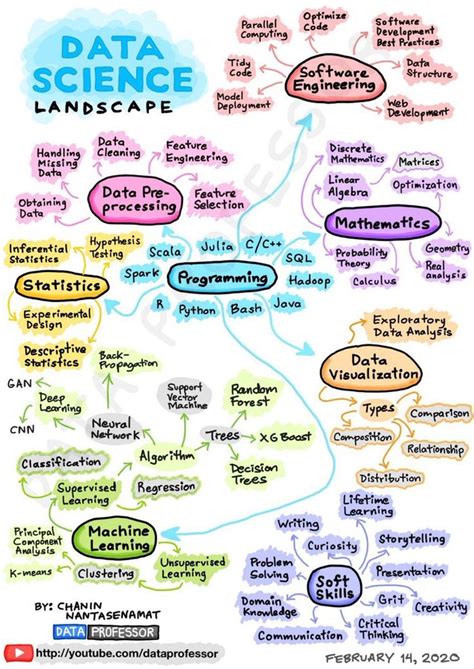 DATA
SCIENCE
LANDSCAPE
Parallel
Computing
Optimize
Code
Software
Development
Best Practices
Tidy
Code
Software
Engineering
Data
Structure
Model
Deployment
Web
Development
Handling
Missing
Data
Data
Cleaning
Feature
Engineering
Obtaining
Data
Data Pre-
processing
Feature
Selection
Discrete
Mathematics
Matrices
Linear
Algebra
Optimization
Mathematics
Probability
Theory
Calculus
Geometry
Real
analysis
Inferential
Statistics
Hypothesis
Testing
Statistics
Experimental
Design
Descriptive
Statistics
Scala
Julia
C/C++
SQL
Spark
Programming
Hadoop
R
Python
Bash
Java
Exploratory
Data Analysis
Data
Visualization
Types
Comparison
Composition
Relationship
Distribution
Back-
Propagation
GAN
Deep
Learning
CNN
Neural
Network
Support
Vector
Machine
Random
Forest
Trees
XG Boost
Decision
Trees
Algorithm
Classification
Supervised
Learning
Regression
Principal
Component
Analysis
Machine
Learning
K-means
Clustering
Unsupervised
Learning
Lifetime
Learning
Writing
Curiosity
Storytelling
Problem
Solving
Presentation
Soft
Skills
Domain
Knowledge
Grit
Creativity
Communication
Critical
Thinking
BY: CHANIN
NANTASENAMAT
DATA PROFESSOR
http://youtube.com/dataprofessor
FEBRUARY 14, 2020
DATA PROFESSOR